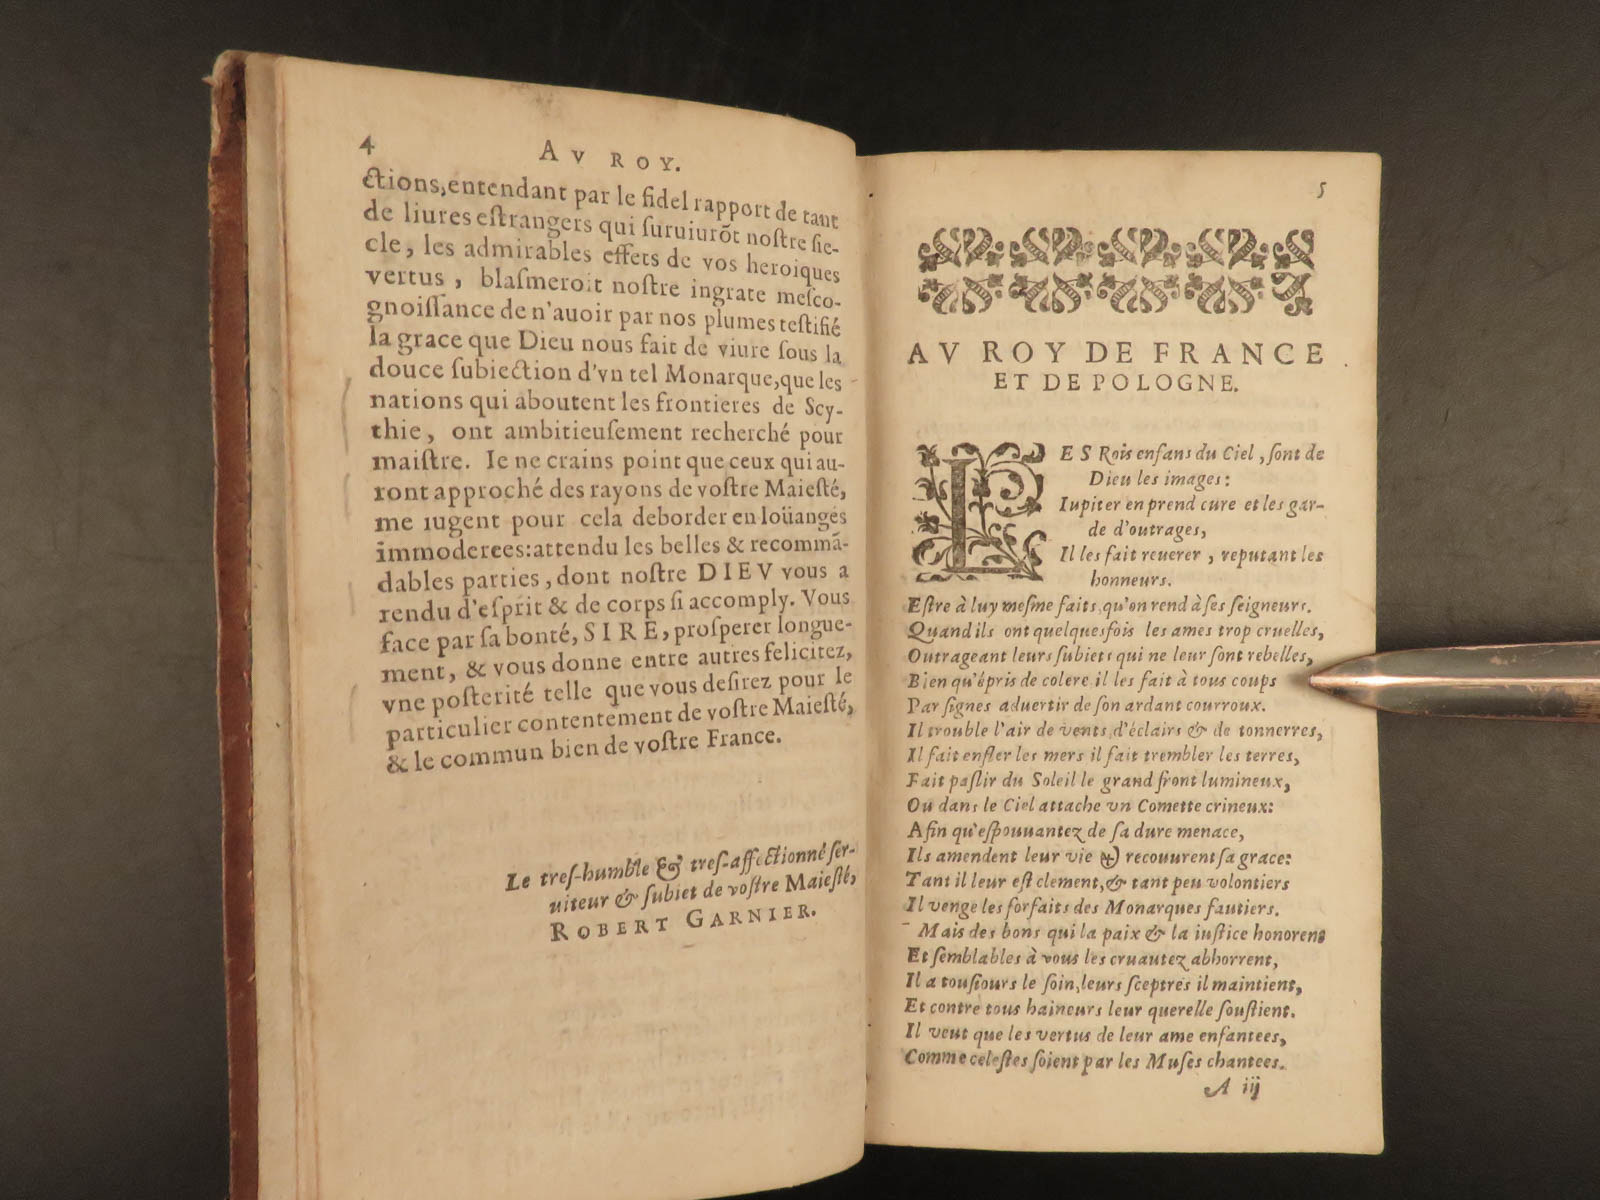 4
AV ROY.
ctions, entendant par le fidel rapport de tant
de liures eſtrangers qui ſuruiurõt noſtre ſie-
cle, les admirables effets de vos heroiques
vertus, blaſmeroit noſtre ingrate meſco-
gnoiſſance de n'auoir par nos plumes teſtifié
la grace que Dieu nous fait de viure ſous la
douce ſubiection d'vn tel Monarque, que les
nations qui aboutent les frontieres de Scy-
thie, ont ambitieuſement recherché pour
maiſtre. Ie ne crains point que ceux qui au-
ront approché des rayons de voſtre Maieſté,
me iugent pour cela deborder en loüanges
immoderees: attendu les belles & recommã-
dables parties, dont noſtre DIEV vous a
rendu d'eſprit & de corps ſi accomply. Vous
face par ſa bonté, SIRE, proſperer longue-
ment, & vous donne entre autres felicitez,
vne poſterité telle que vous deſirez pour le
particulier contentement de voſtre Maieſté,
& le commun bien de voſtre France.
Le treſ-humble & treſ-affectionné ſer-
uiteur & ſubiet de voſtre Maieſté,
ROBERT GARNIER.
5
AV ROY DE FRANCE
ET DE POLOGNE.
LES Rois enfans du Ciel, ſont de
Dieu les images:
Iupiter en prend cure et les gar-
de d'outrages,
Il les fait reuerer, reputant les
honneurs.
Eſtre à luy meſme faits, qu'on rend à ſes ſeigneurs.
Quand ils ont quelquesfois les ames trop cruelles,
Outrageant leurs ſubiets qui ne leur ſont rebelles,
Bien qu'épris de colere il les fait à tous coups
Par ſignes aduertir de ſon ardant courroux.
Il trouble l'air de vents, d'éclairs & de tonnerres,
Il fait enfler les mers il fait trembler les terres,
Fait paſlir du Soleil le grand front lumineux,
Ou dans le Ciel attache vn Comette crineux:
Afin qu'eſpouuantez de ſa dure menace,
Ils amendent leur vie & recouurent ſa grace:
Tant il leur eſt clement, & tant peu volontiers
Il venge les forfaits des Monarques fautiers.
Mais des bons qui la paix & la iuſtice honorent
Et ſemblables à vous les cruautez abhorrent,
Il a touſiours le ſoin, leurs ſceptres il maintient,
Et contre tous haineurs leur querelle ſouſtient.
Il veut que les vertus de leur ame enfantees,
Comme celeſtes ſoient par les Muſes chantees.
A iij